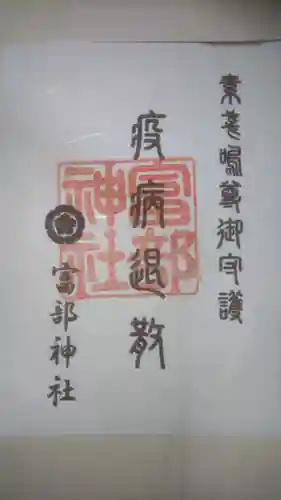 素盞嗚尊御守護
疫病退散
富部神社
富部神社